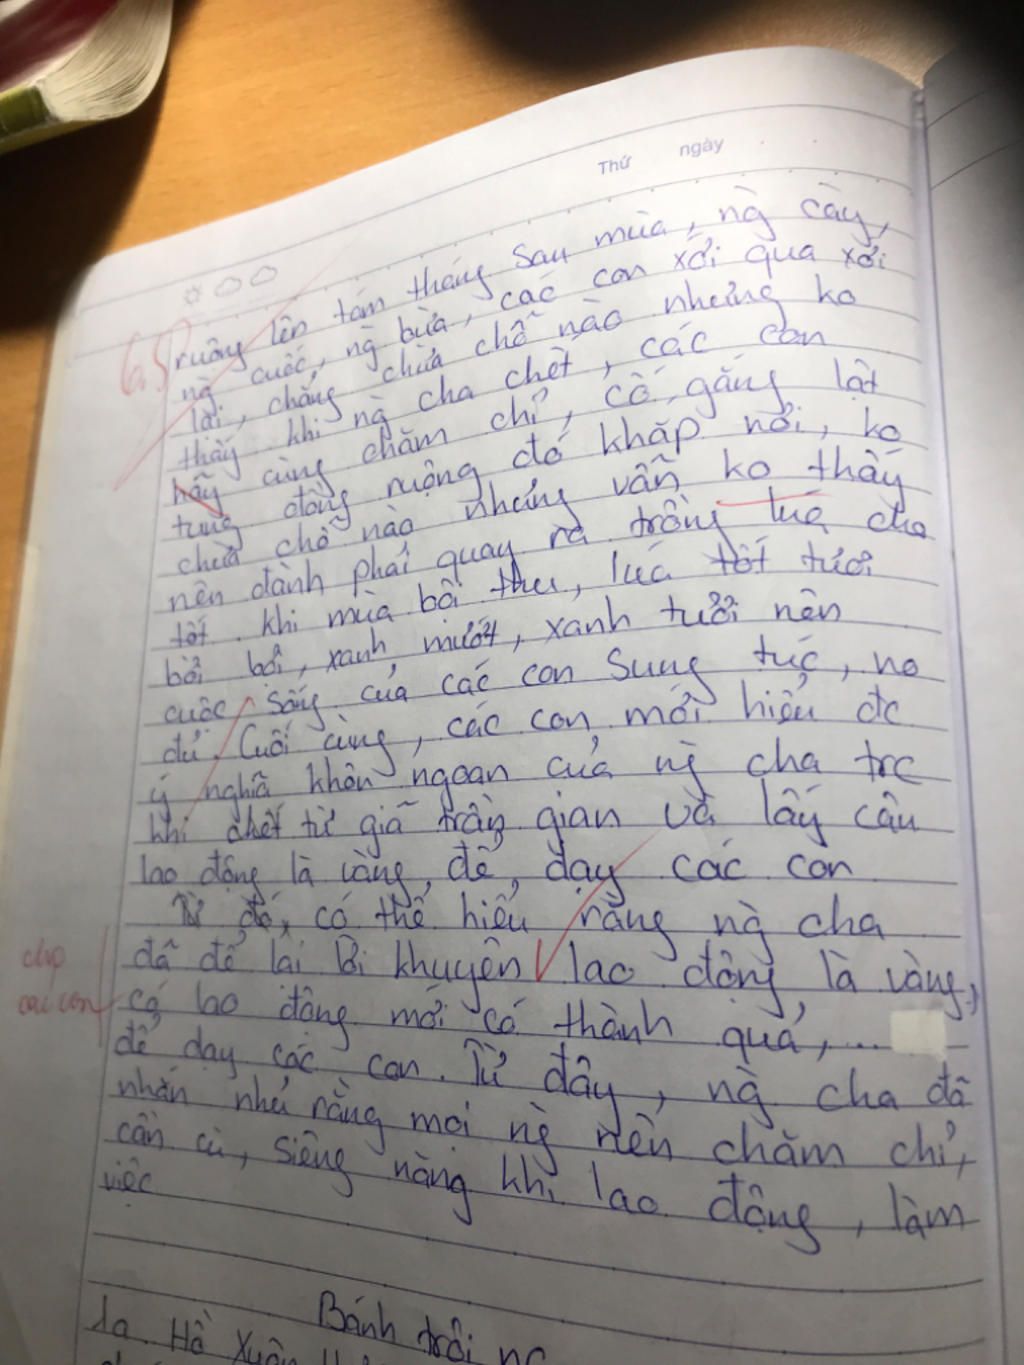 Thứ ngày
6.5
ruộng lên tám tháng sau mùa, ng̀ cày,
ng̀ cuốc, ng̀ bừa, các con xới qua xới
lại, chẳng chừa chỗ nào nhưng ko
thấy khi ng̀ cha chết, các con
hãy cùng chăm chỉ, cố gắng lật
tung đồng ruộng đó khắp nơi, ko
chừa chỗ nào nhưng vẫn ko thấy
nên đành phải quay ra trồng lúa cho
tốt. khi mùa bội thu, lúa tốt tươi
bời bời, xanh mướt, xanh tươi nên
cuộc sống của các con sung túc, no
đủ. Cuối cùng, các con mới hiểu đc
ý nghĩa khôn ngoan của ng̀ cha trc
khi chết từ giã trần gian và lấy câu
lao động là vàng, để dạy các con
Từ đó, có thể hiểu rằng ng̀ cha
đã để lại lời khuyên lao động là vàng,
cho
các con
có lao động mới có thành quả, ...
để dạy các con. Từ đây, ng̀ cha đã
nhắn nhủ rằng mọi ng̀ nên chăm chỉ,
cần cù, siêng năng khi lao động, làm
việc
Bánh trôi nc
1a. Hồ Xuân